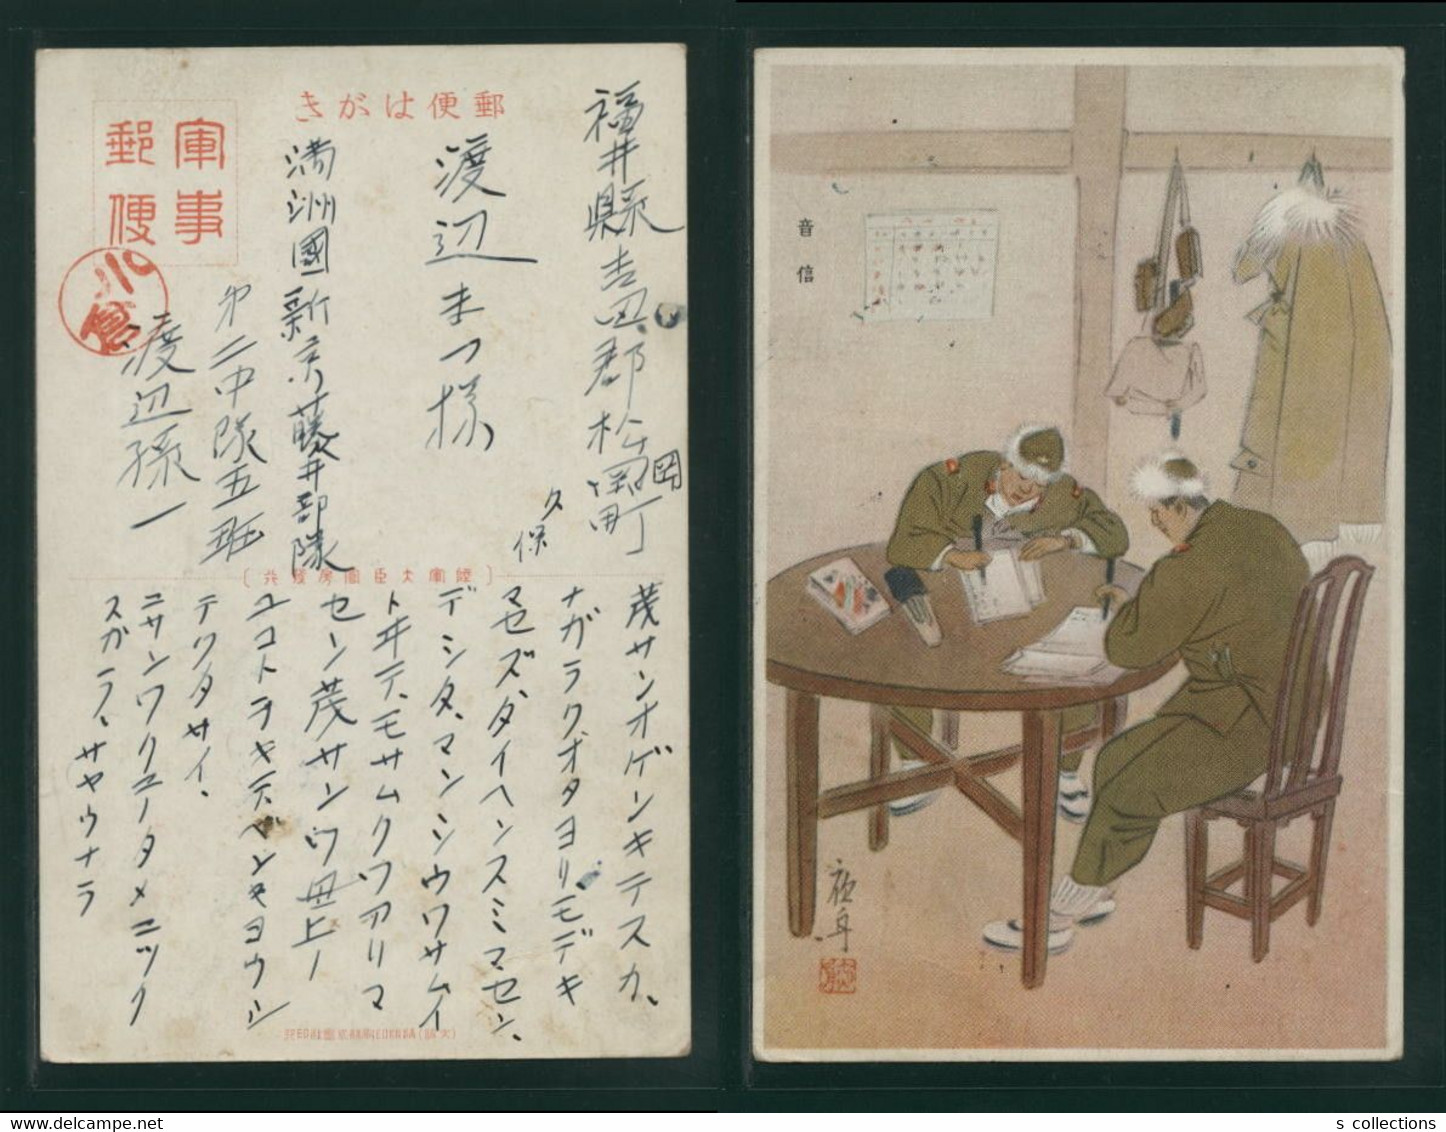 郵便はがき
軍事
郵便
小倉
福井縣吉田郡松岡町
岡
久保
渡辺まつ様
満洲國新京藤井部隊
第二中隊五班
渡辺孫一
〔陸軍大臣官房發行〕
茂サンオゲンキテスカ、
ナガラクオタヨリモデキ
マセズ、ダイヘンスミマセン、
デシタ、マンシウワサムイ
トヰテ、モサムクワアリマ
セン茂サンワ母上ノ
ユコトヲキテベンキヨウシ
テクタサイ、
ニサンワクニノタメニツク
スガラ、サヤウナラ
音信
s collections